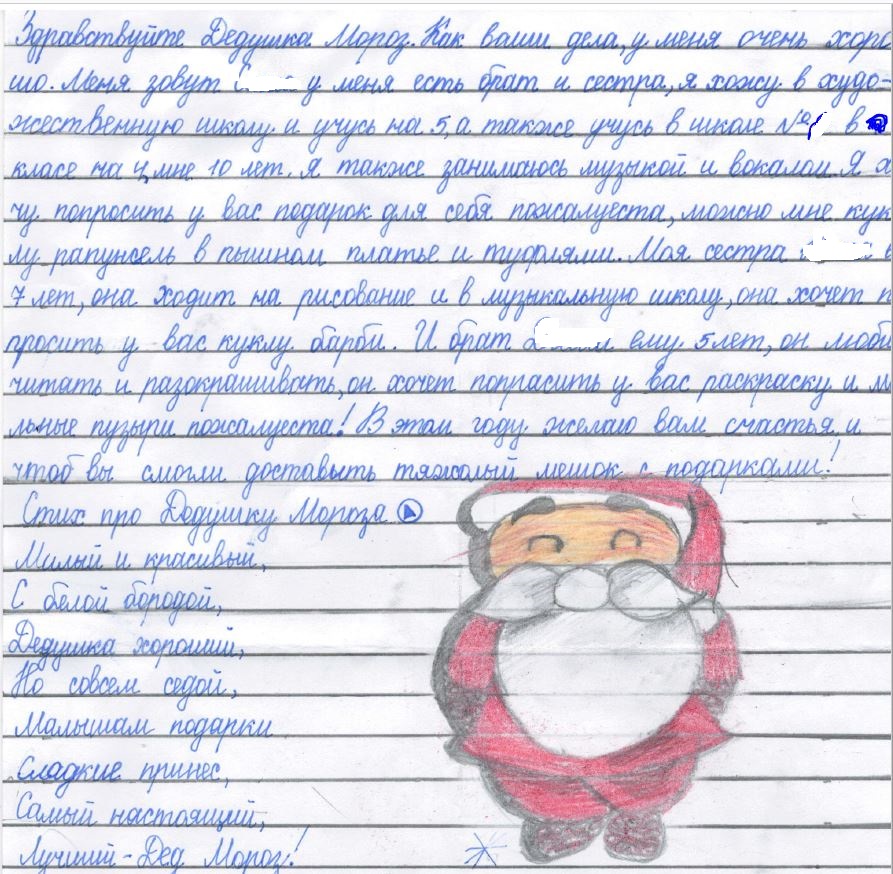 Здравствуйте Дедушка Мороз. Как ваши дела, у меня очень хоро
шо. Меня зовут у меня есть брат и сестра, я хожу в худо-
жественную школу и учусь на 5, а также учусь в школе № в
класе на 4, мне 10 лет. Я также занимаюсь музыкой и вокалом. Я х
чу попросить у вас подарок для себя пожалуеста, можно мне кук
лу рапунсель в пышном платье и туфлями. Моя сестра
7 лет, она ходит на рисование и в музыкальную школу, она хочет п
просить у вас куклу барби. И брат ему 5 лет, он люби
читать и разокрашивать, он хочет попрасить у вас раскраску и м
льные пузыри пожалуеста! В этом году желаю вам счастья и
чтоб вы смогли доставыть тяжолый мешок с подарками!
Стих про Дедушку Мороза
Милый и красивый,
С белой бородой,
Дедушка хороший,
Но совсем седой,
Малышам подарки
Сладкие принес,
Самый настоящий,
Лучший - Дед Мороз!